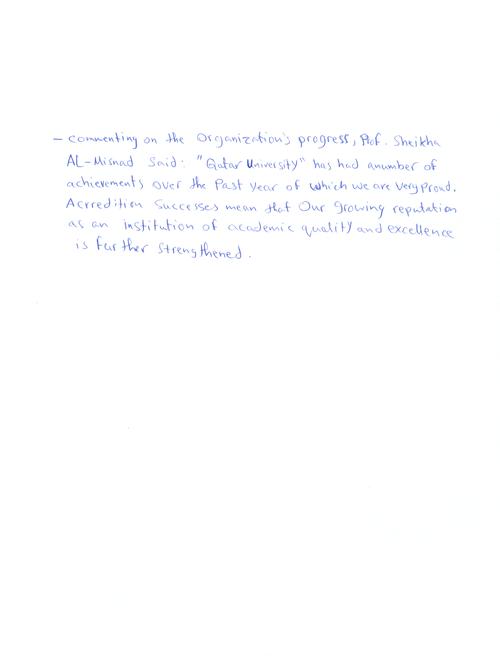 - Commenting on the Organization's progress, Prof. Sheikha
AL-Misnad Said: "Qatar University" has had anumber of
achievements over the Past year of which we are very Proud.
Acrredition Successes mean that Our growing reputation
as an institution of academic quality and excellence
is further Strengthened.